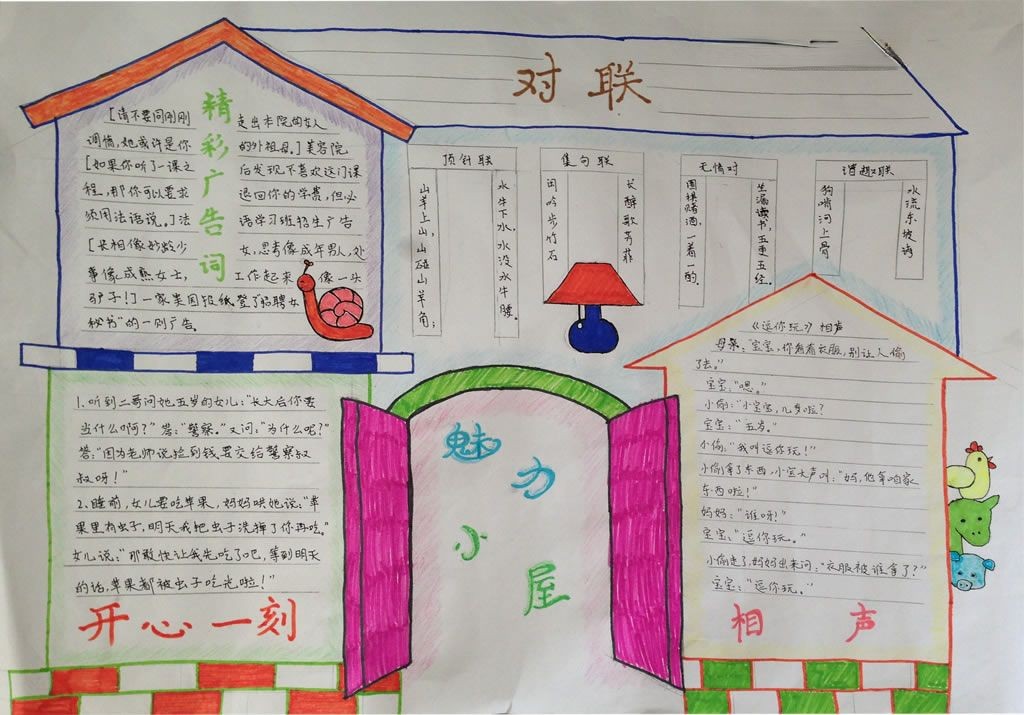 对联
精彩广告词
[请不要问刚刚走出本院的女人
调情,她或许是你的外祖母。]美容院
[如果你听了一课之后发现不喜欢这门课
程,那你可以要求退回你的学费,但必
须用法语说。]法语学习班招生广告
[长相像妙龄少女,思考像成年男人,处
事像成熟女士,工作起来像一头
驴子!]一家美国报纸登了招聘女
秘书"的一则广告。
顶针联
水牛下水,水没水牛腰。
山羊上山,山碰山羊角;
集句联
长醉歌芳菲
闲吟步竹石
无情对
生漏读书,五更五经。
围棋赌酒,一着一酌。
谐趣联
水流东坡海
狗啃河上骨
1、听到二哥问她五岁的女儿:"长大后你要
当什么啊?"答:"警察。"又问:"为什么呢?"
答:"因为老师说捡到钱要交给警察叔
叔呀!"
2、睡前,女儿要吃苹果,妈妈哄她说:"苹
果里有虫子,明天我把虫子洗掉了你再吃。"
女儿说:"那敢快让我先吃了吧,等到明天
的话,苹果都被虫子吃光啦!"
开心一刻
魅力小屋
《逗你玩》相声
母亲:"宝宝,你看着衣服,别让人偷
了去。"
宝宝:"嗯。"
小偷:"小宝宝,几岁啦?
宝宝:"五岁。"
小偷:"我叫逗你玩!"
小偷拿了东西,小宝大声叫:"妈,他拿咱家
东西啦!"
妈妈:"谁呀!"
宝宝:"逗你玩。"
小偷走了,妈妈出来问:"衣服被谁拿了?"
宝宝:"逗你玩。"
相声